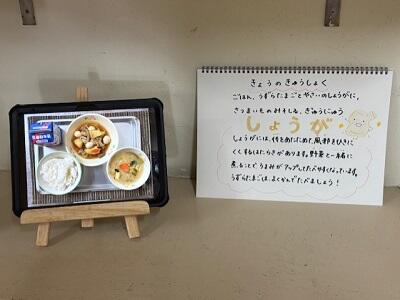 きょうのきゅうしょく
ごはん、うずらたまごとやさいのしょうがに、
さつまいものみそしる、ぎゅうにゅう
しょうが
しょうがには、体をあたためて、風邪をひきに
くくするはたらきがあります。野菜と一緒に
煮ることでうまみがアップしてたべやすくなっています。
うずらたまごは、よくかんでたべましょう！